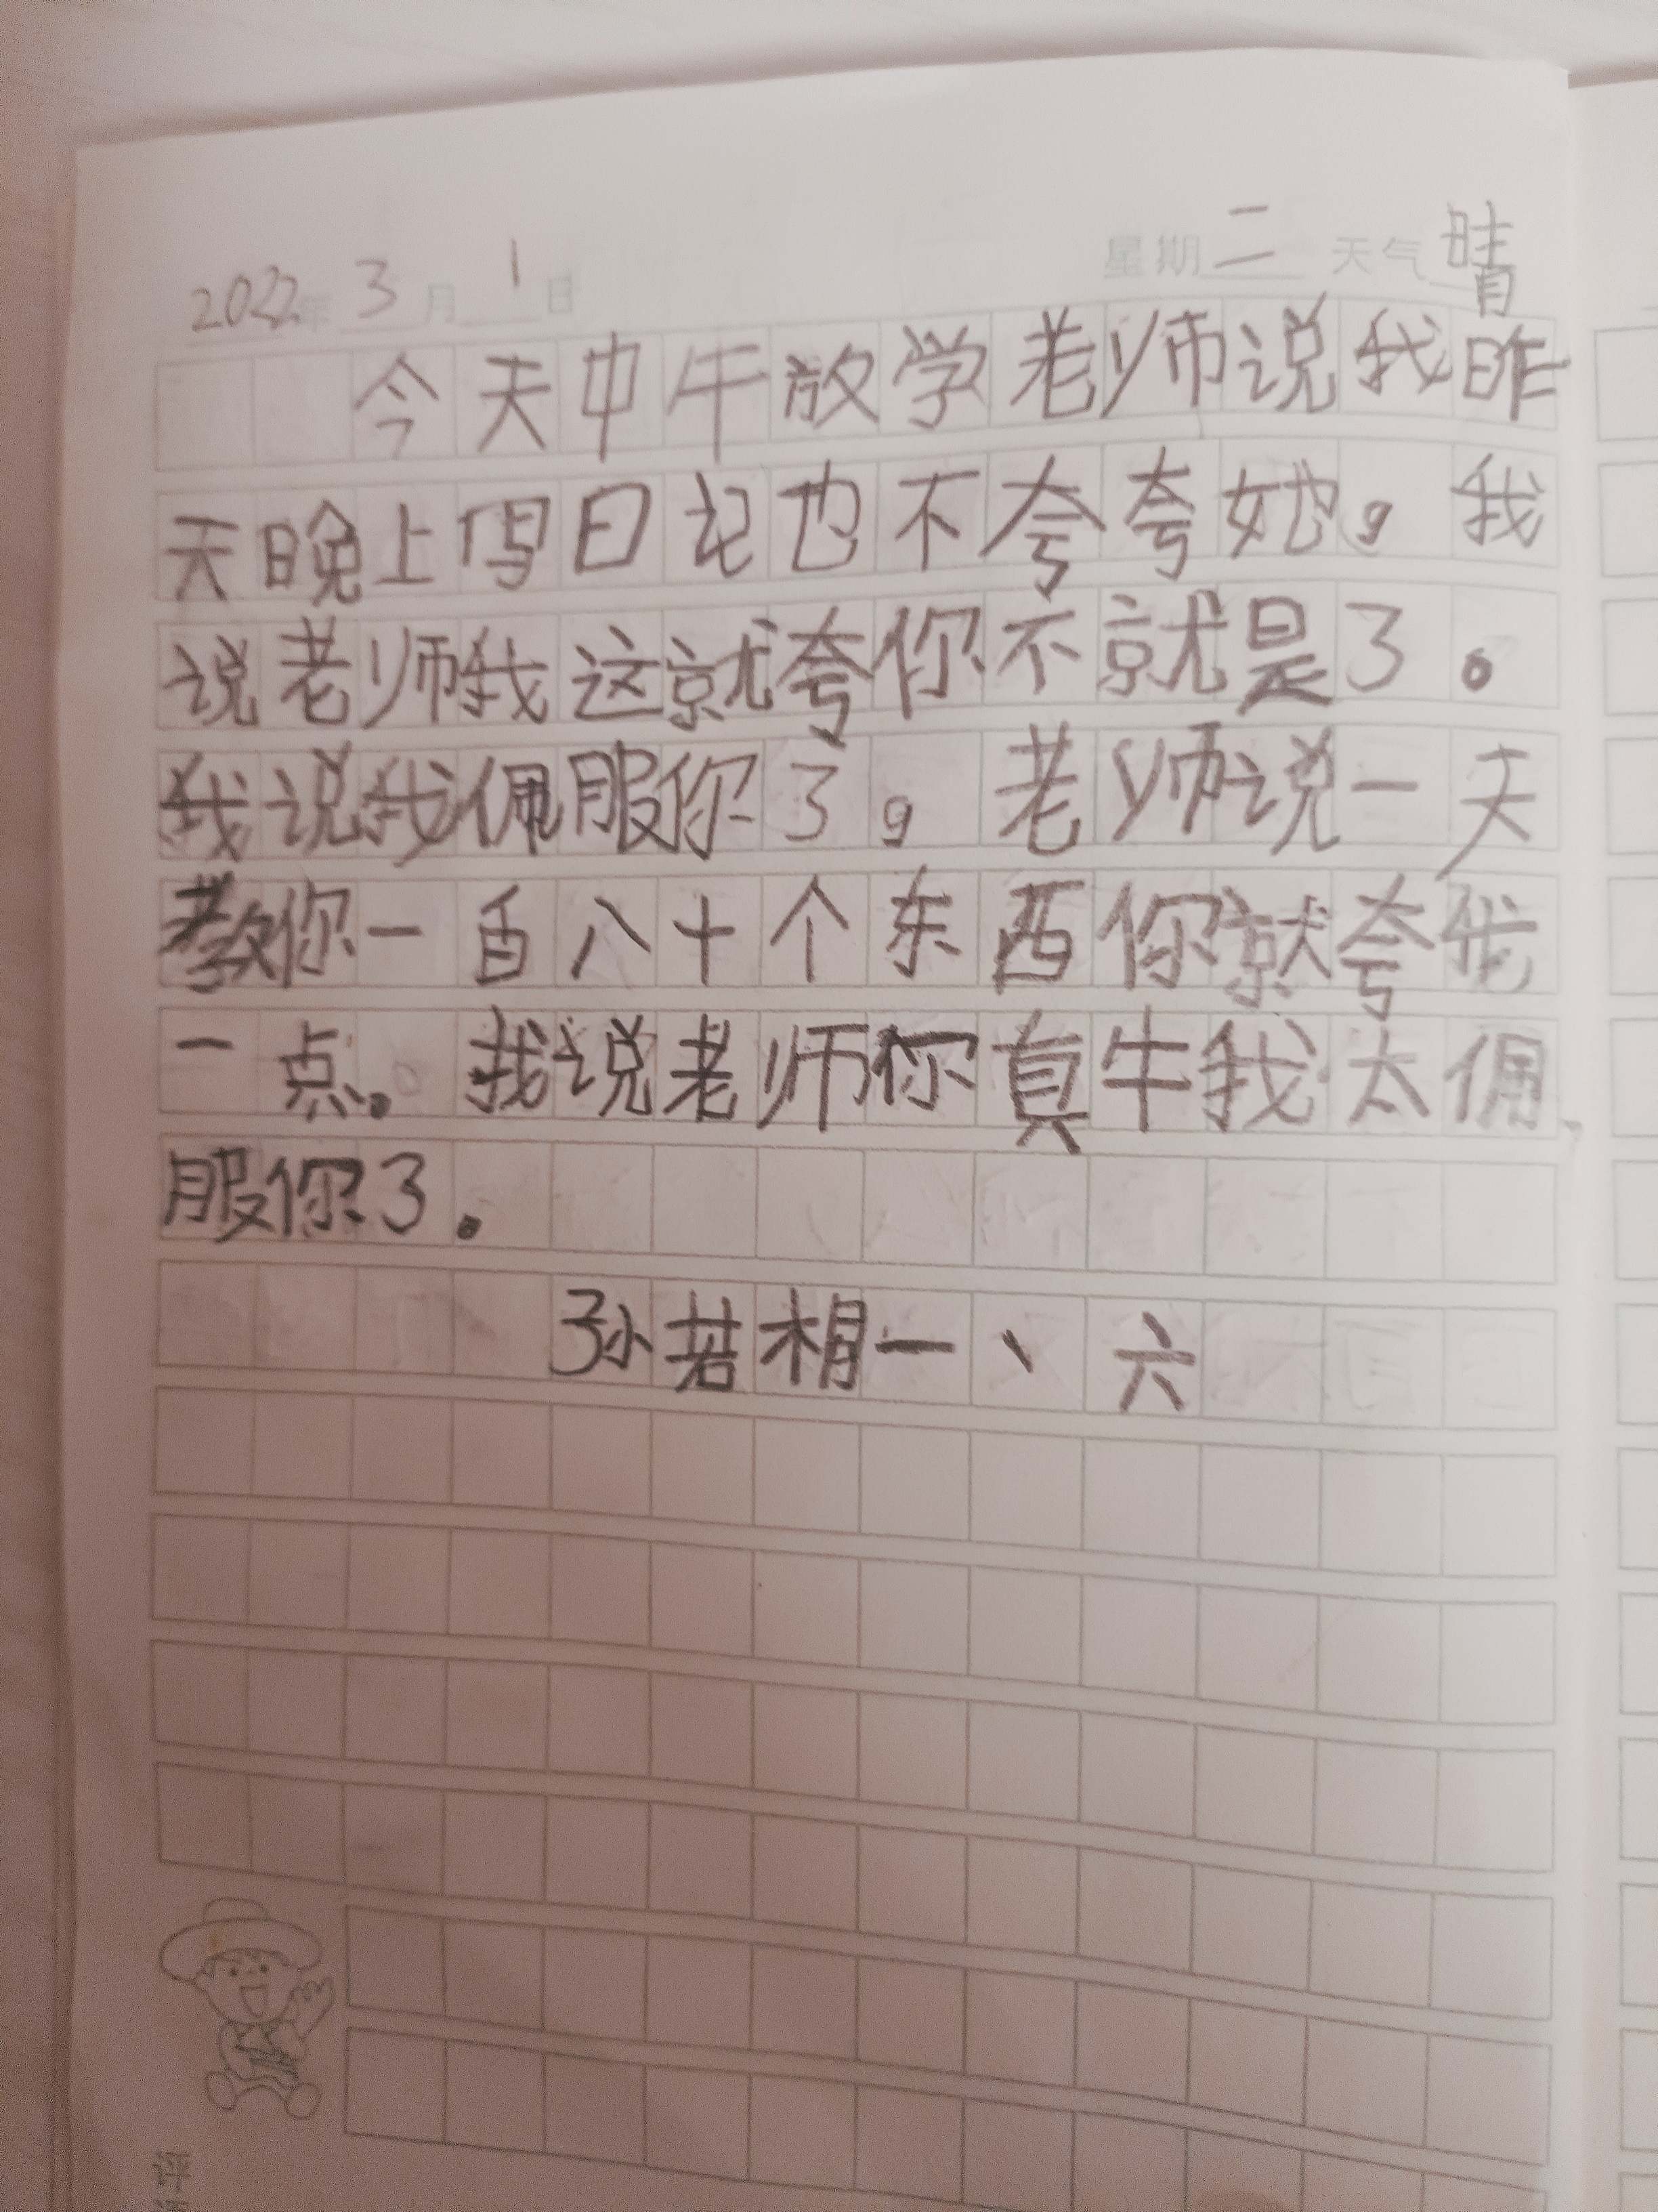 2022年 3月 1日 星期二 天气 晴
今天中午放学老师说我昨
天晚上写日记也不夸夸她。我
说老师我这就夸你不就是了。
我说我佩服你了。老师说一天
教你一百八十个东西你就夸我
一点。我说老师你真牛我太佩
服你了。
孙若相一、六